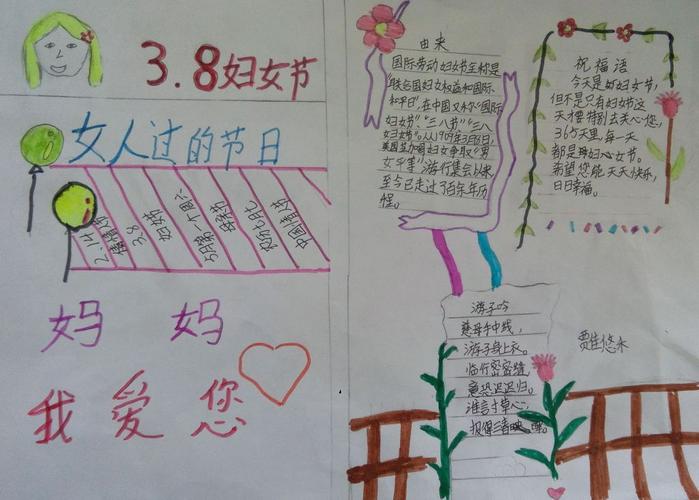 3.8妇女节
女人过的节日
2.14
情人节
3.8
妇女节
5月第一个周六
母亲节
农历七月七
中国情人节
妈 妈
我 爱 您
由来
国际劳动妇女节全称是
"联合国妇女权益和国际
和平日",在中国又称"国际
妇女节""三八节""三八
妇女节"。从1909年3月8日,
美国芝加哥妇女争取"男
女平等"游行集会以来,
至今已走过了百余年历
程。
祝福语
今天是妇女节,
但不是只有妇女节这
天才要特别去关心您,
365天里,每一天
都是妇女节。
希望您能天天快乐,
日日幸福。
游子吟
慈母手中线,
游子身上衣。
临行密密缝,
意恐迟迟归。
谁言寸草心,
报得三春晖。